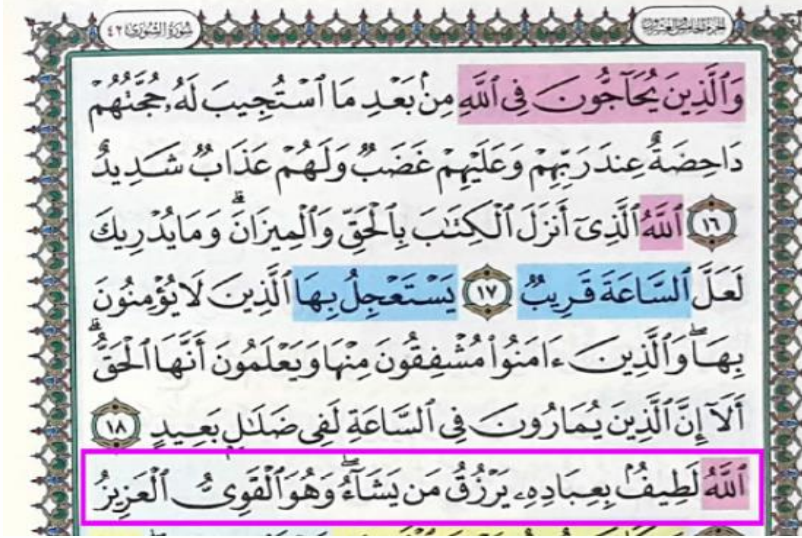 سُورَةُ الشُّورَىٰ ٤٢
وَٱلَّذِينَ يُحَآجُّونَ فِى ٱللَّهِ مِنۢ بَعْدِ مَا ٱسْتُجِيبَ لَهُۥ حُجَّتُهُمْ
دَاحِضَةٌ عِندَ رَبِّهِمْ وَعَلَيْهِمْ غَضَبٌ وَلَهُمْ عَذَابٌ شَدِيدٌ
١٦ ٱللَّهُ ٱلَّذِىٓ أَنزَلَ ٱلْكِتَٰبَ بِٱلْحَقِّ وَٱلْمِيزَانَ ۗ وَمَا يُدْرِيكَ
لَعَلَّ ٱلسَّاعَةَ قَرِيبٌ ١٧ يَسْتَعْجِلُ بِهَا ٱلَّذِينَ لَا يُؤْمِنُونَ
بِهَا ۖ وَٱلَّذِينَ ءَامَنُوا۟ مُشْفِقُونَ مِنْهَا وَيَعْلَمُونَ أَنَّهَا ٱلْحَقُّ ۗ
أَلَآ إِنَّ ٱلَّذِينَ يُمَارُونَ فِى ٱلسَّاعَةِ لَفِى ضَلَٰلٍۭ بَعِيدٍ ١٨
ٱللَّهُ لَطِيفٌۢ بِعِبَادِهِۦ يَرْزُقُ مَن يَشَآءُ ۖ وَهُوَ ٱلْقَوِىُّ ٱلْعَزِيزُ